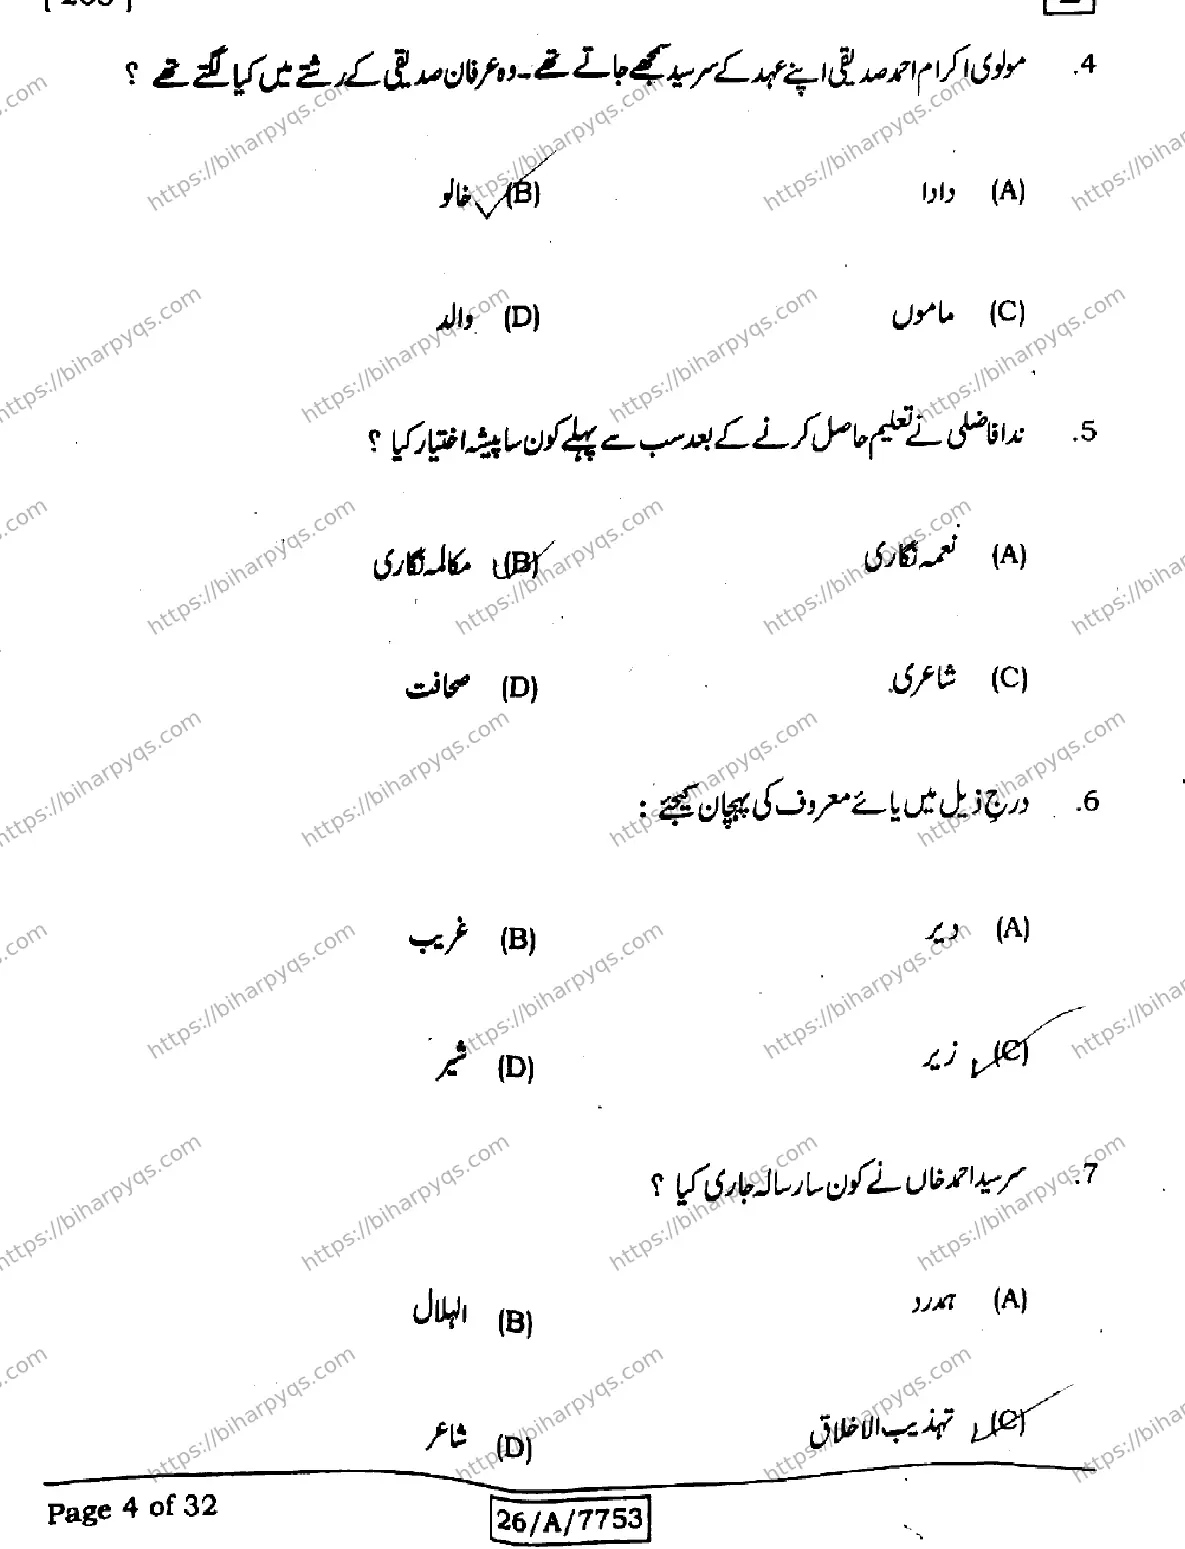 [ 205 ]
2
4. مولوی اکرام احمد صدیقی اپنے عہد کے سرسید سمجھے جاتے تھے۔ وہ عرفان صدیقی کے رشتے میں کیا لگتے تھے ؟
(A) دادا (B) خالو
(C) ماموں (D) والد
5. ندا فاضلی نے تعلیم حاصل کرنے کے بعد سب سے پہلے کون سا پیشہ اختیار کیا ؟
(A) نغمہ نگاری (B) مکالمہ نگاری
(C) شاعری (D) صحافت
6. درج ذیل میں یائے معروف کی پہچان کیجئے :
(A) دیر (B) غریب
(C) زیر (D) شیر
7. سرسید احمد خاں نے کون سا رسالہ جاری کیا ؟
(A) ہمدرد (B) الہلال
(C) تہذیب الاخلاق (D) شاعر
Page 4 of 32
26/A/7753
https://biharpyqs.com